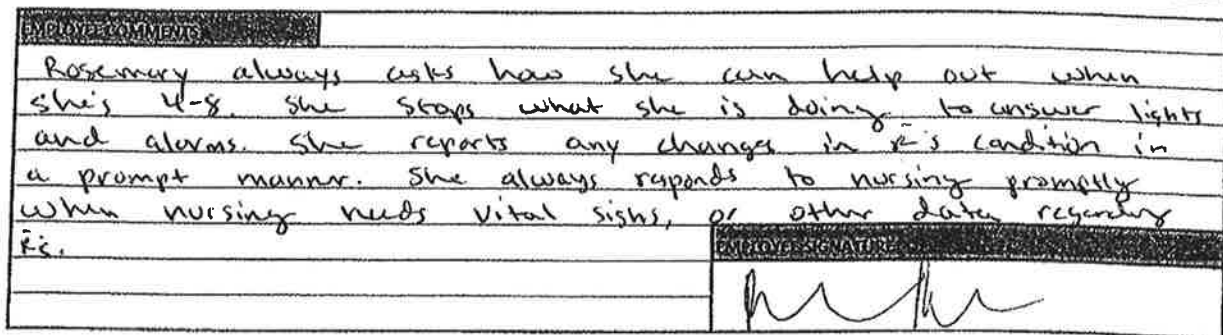 EMPLOYEE COMMENTS
Rosemary always asks how she can help out when
she's 4-8. She stops what she is doing to answer lights
and alarms. She reports any changes in R̄'s condition in
a prompt manner. She always reponds to nursing promptly
when nursing needs vital signs, or other data regarding
R̄'s.
EMPLOYEE SIGNATURE